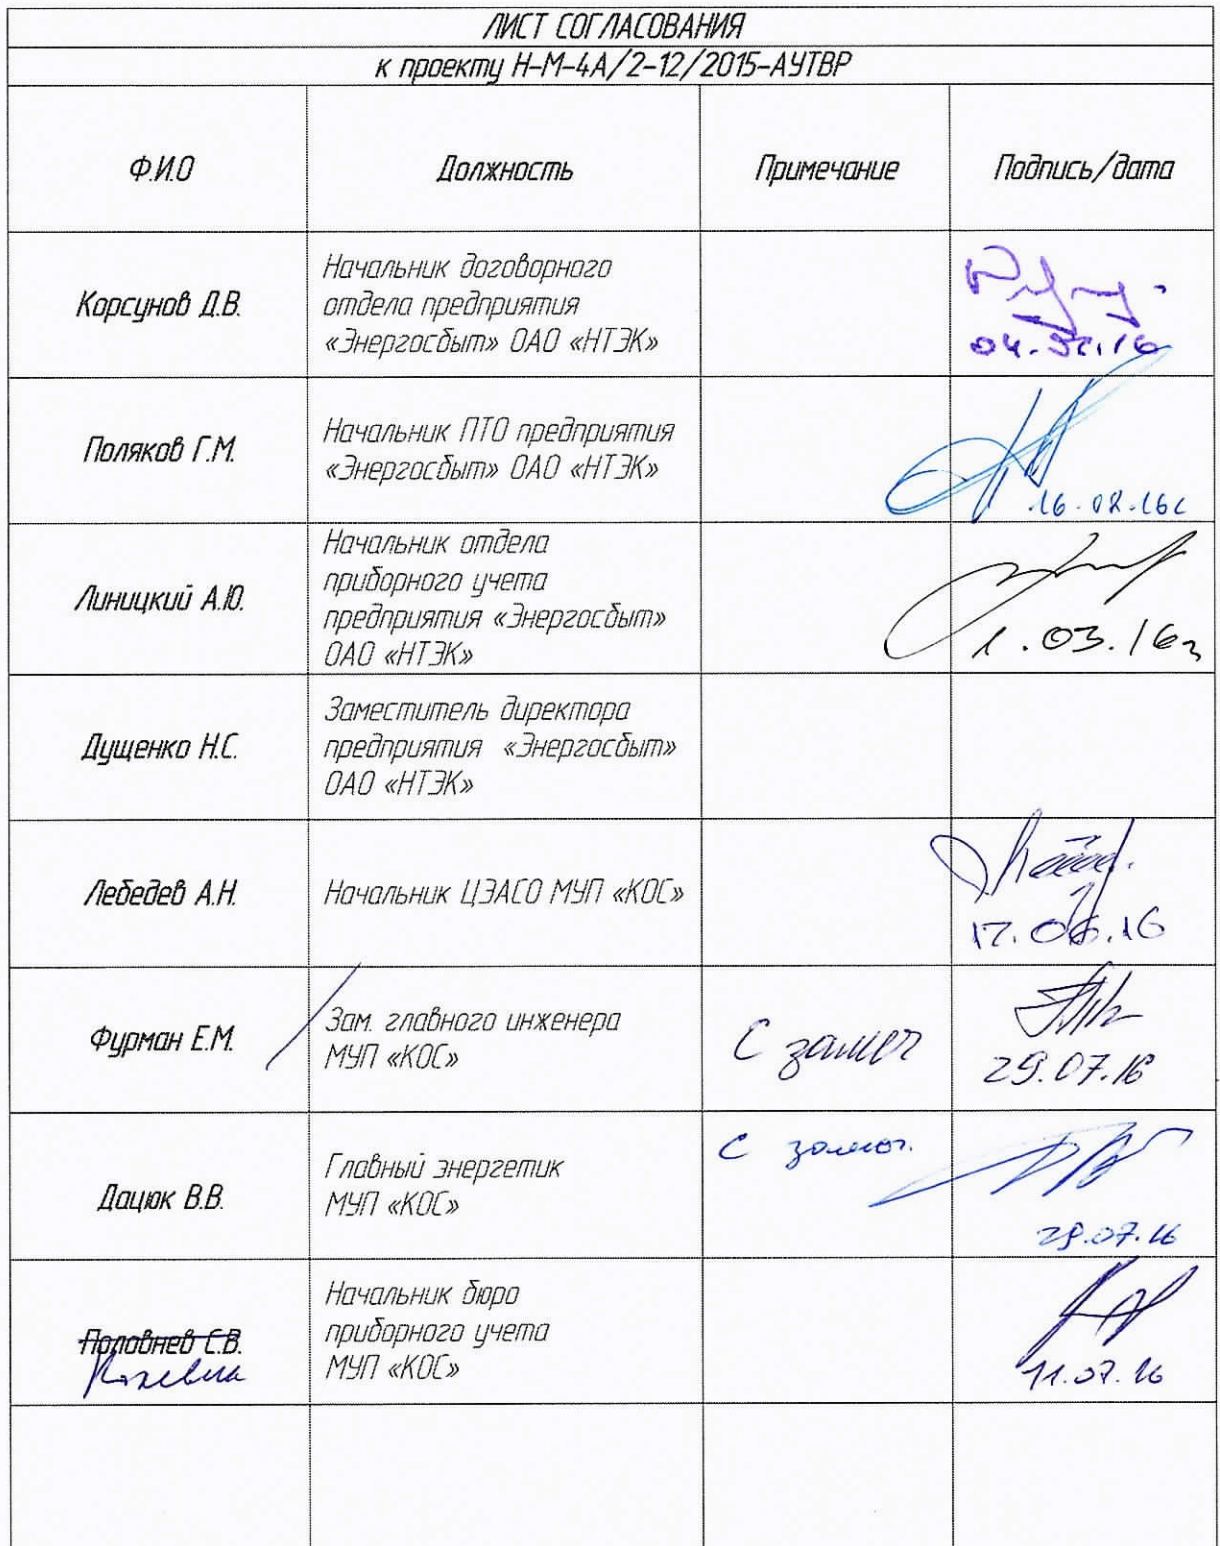 ЛИСТ СОГЛАСОВАНИЯ
к проекту Н-М-4А/2-12/2015-АУТВР
Ф.И.О
Должность
Примечание
Подпись/дата
Корсунов Д.В.
Начальник договорного
отдела предприятия
«Энергосбыт» ОАО «НТЭК»
Поляков Г.М.
Начальник ПТО предприятия
«Энергосбыт» ОАО «НТЭК»
16.02.16г
Линицкий А.Ю.
Начальник отдела
приборного учета
предприятия «Энергосбыт»
ОАО «НТЭК»
1.03.16г
Дущенко Н.С.
Заместитель директора
предприятия «Энергосбыт»
ОАО «НТЭК»
Лебедев А.Н.
Начальник ЦЭАСО МУП «КОС»
17.06.16
Фурман Е.М.
Зам. главного инженера
МУП «КОС»
С замеч
29.07.16
Дацюк В.В.
Главный энергетик
МУП «КОС»
С замеч.
29.07.16
Половнев С.В.
Начальник бюро
приборного учета
МУП «КОС»
11.07.16